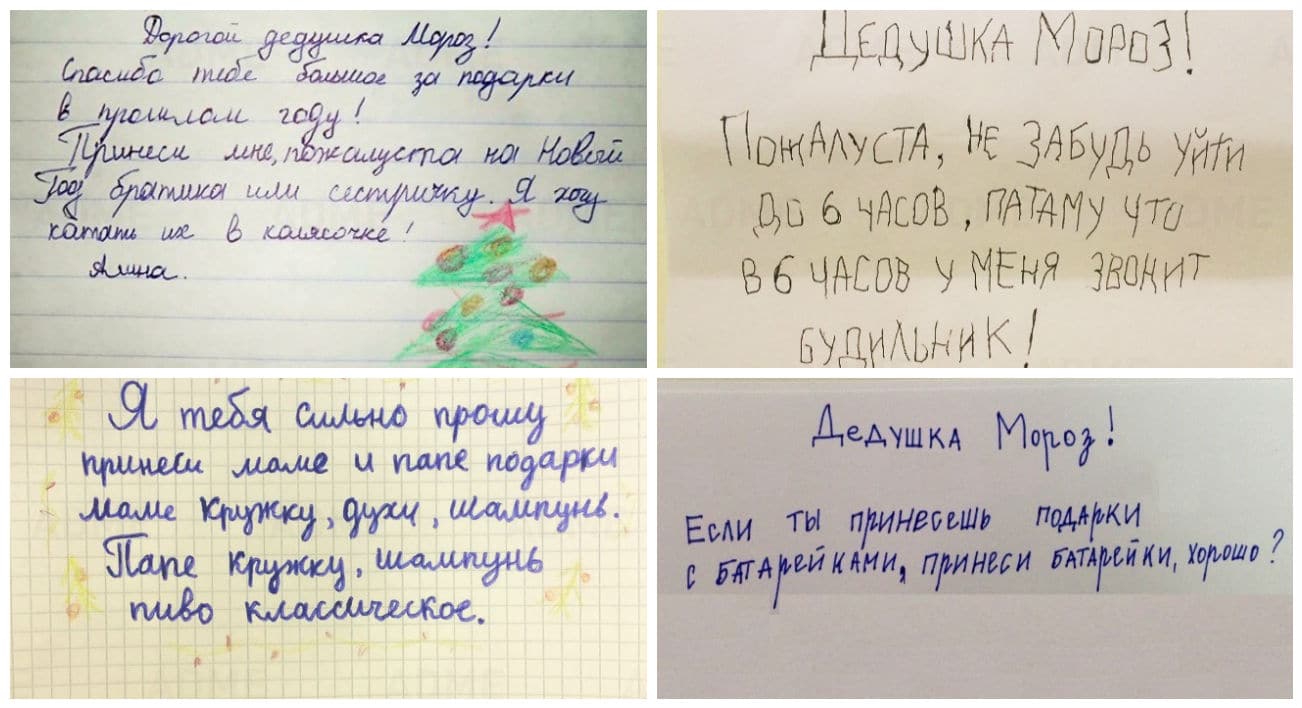 Дорогой дедушка Мороз!
Спасибо тебе большое за подарки
в прошлом году!
Принеси мне, пожалуста на Новый
Год братика или сестричку. Я хочу
катать их в колясочке!
Алина.
ДЕДУШКА МОРОЗ!
ПОЖАЛУСТА, НЕ ЗАБУДЬ УЙТИ
ДО 6 ЧАСОВ, ПАТАМУ ЧТО
В 6 ЧАСОВ У МЕНЯ ЗВОНИТ
БУДИЛЬНИК!
Я тебя сильно прошу
принеси маме и папе подарки
маме кружку, духи, шампунь.
Папе кружку, шампунь
пиво классическое.
Дедушка Мороз!
Если ты принесешь подарки
с батарейками, принеси батарейки, хорошо?